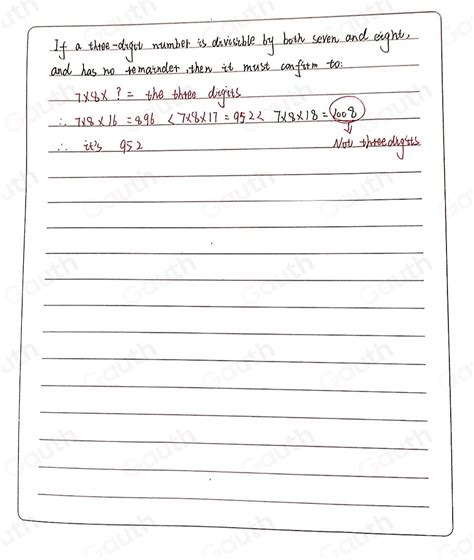 If a three-digit number is divisible by both seven and eight,
and has no remainder, then it must confirm to:
7×8×? = the three digits
∴ 7×8×16 = 896 < 7×8×17 = 952 < 7×8×18 = 1008
∴ it's 952
Not three digits
Gauth